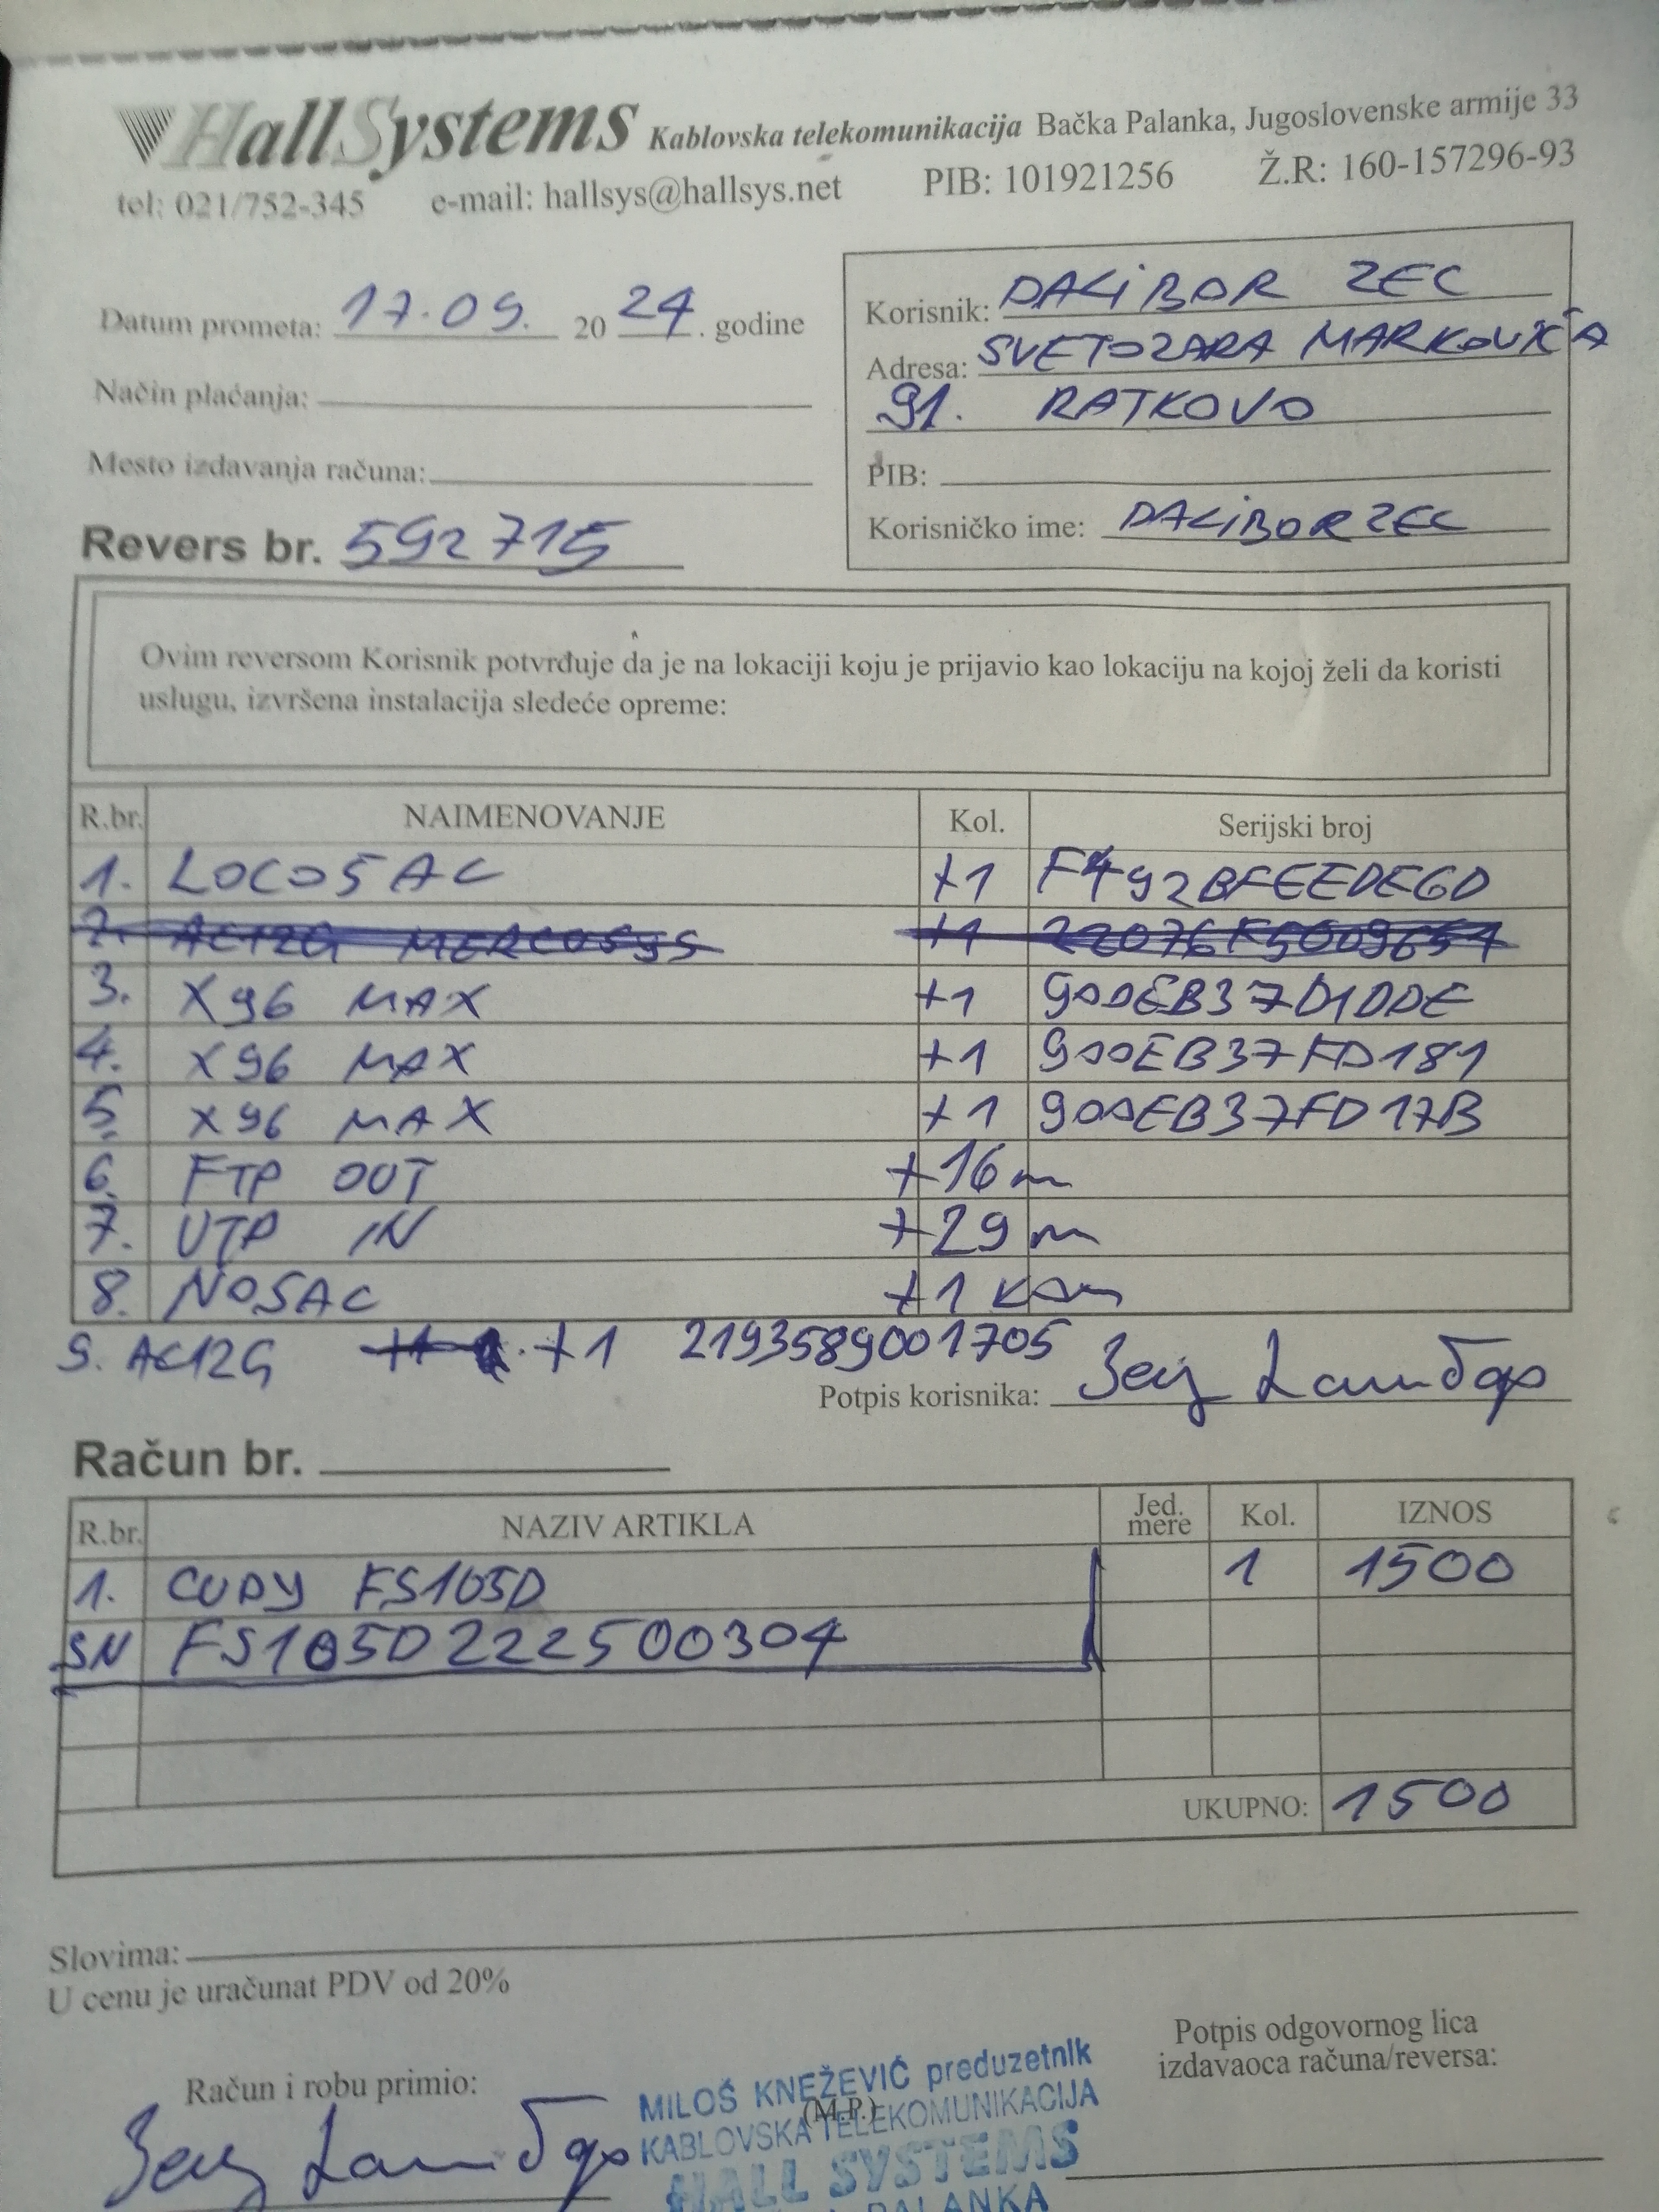 HallSystems Kablovska telekomunikacija Bačka Palanka, Jugoslovenske armije 33
tel: 021/752-345 e-mail: hallsys@hallsys.net PIB: 101921256 Ž.R: 160-157296-93
Datum prometa: 17.09. 20 24. godine
Način plaćanja:
Mesto izdavanja računa:
Revers br. 592715
Korisnik: DALIBOR ZEC
Adresa: SVETOZARA MARKOVIĆA
91. RATKOVO
PIB:
Korisničko ime: DALIBORZEC
Ovim reversom Korisnik potvrđuje da je na lokaciji koju je prijavio kao lokaciju na kojoj želi da koristi
uslugu, izvršena instalacija sledeće opreme:
R.br. NAIMENOVANJE Kol. Serijski broj
1. LOCO5AC +1 F492BFEEDE6D
2. AC12G MERCUSYS +1 22076F5009654
3. X96 MAX +1 900EB37D1DDE
4. X96 MAX +1 900EB37FD181
5. X96 MAX +1 900EB37FD17B
6. FTP OUT +16m
7. UTP IN +29m
8. NOSAC +1 kom
9. AC12G +1 2193589001705
Potpis korisnika: Зец Далибор
Račun br.
R.br. NAZIV ARTIKLA Jed. mere Kol. IZNOS
1. CUDY FS105D 1 1500
SN FS105D222500304
UKUPNO: 1500
Slovima:
U cenu je uračunat PDV od 20%
Račun i robu primio:
Зец Далибор
MILOŠ KNEŽEVIĆ preduzetnik
(M.P.)
KABLOVSKA TELEKOMUNIKACIJA
HALL SYSTEMS
PALANKA
Potpis odgovornog lica
izdavaoca računa/reversa: